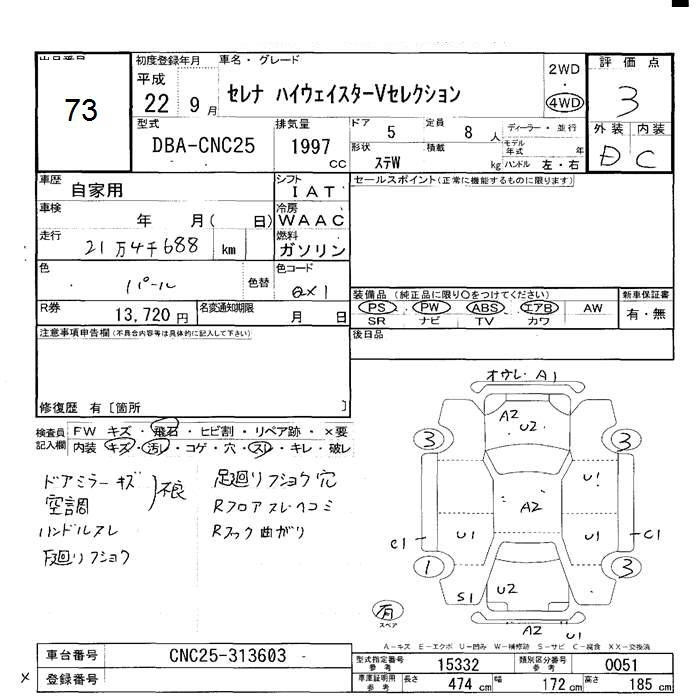 出品番号
73
初度登録年月
平成
22 9 月
車名・グレード
セレナ ハイウェイスターVセレクション
2WD
・
4WD
評価点
3
外装 内装
D C
型式
DBA-CNC25
排気量
1997
cc
ドア 5 定員 8 人
形状 ステW 積載 kg
ディーラー・並行
モデル年式 年
ハンドル 左・右
車歴
自家用
シフト
IAT
車検
年 月( 日)
冷房
WAAC
走行
21万4千688 km
燃料
ガソリン
色
パール
色替
色コード
QX1
R券
13,720 円
名変通知期限
月 日
セールスポイント(正常に機能するものに限ります)
装備品(純正品に限り○をつけてください)
PS PW ABS エアB AW
SR ナビ TV カワ
新車保証書
有・無
後日品
注意事項申告欄(不具合内容等は具体的に記入して下さい)
修復歴 有〔箇所 〕
検査員記入欄
FW キズ・飛石・ヒビ割・リペア跡・×要
内装 キズ・汚レ・コゲ・穴・スレ・キレ・破レ
ドアミラーキズ
空調
不良
ハンドルスレ
下廻りフショク
足廻りフショク穴
Rフロアスレヘコミ
Rフック曲がり
オウレ・A1
A2
U2
3
3
U1
A2
C1
U1
U1
C1
1
3
S1
U2
有
スペア
A2
U1
A-キズ E-エクボ U-凹み W-補修跡 S-サビ C-腐食 XX-交換済
車台番号
CNC25-313603
登録番号
型式指定番号
参考
15332
類別区分番号
参考
0051
車庫証明用
参考
長さ 474 cm 幅 172 cm 高さ 185 cm
×